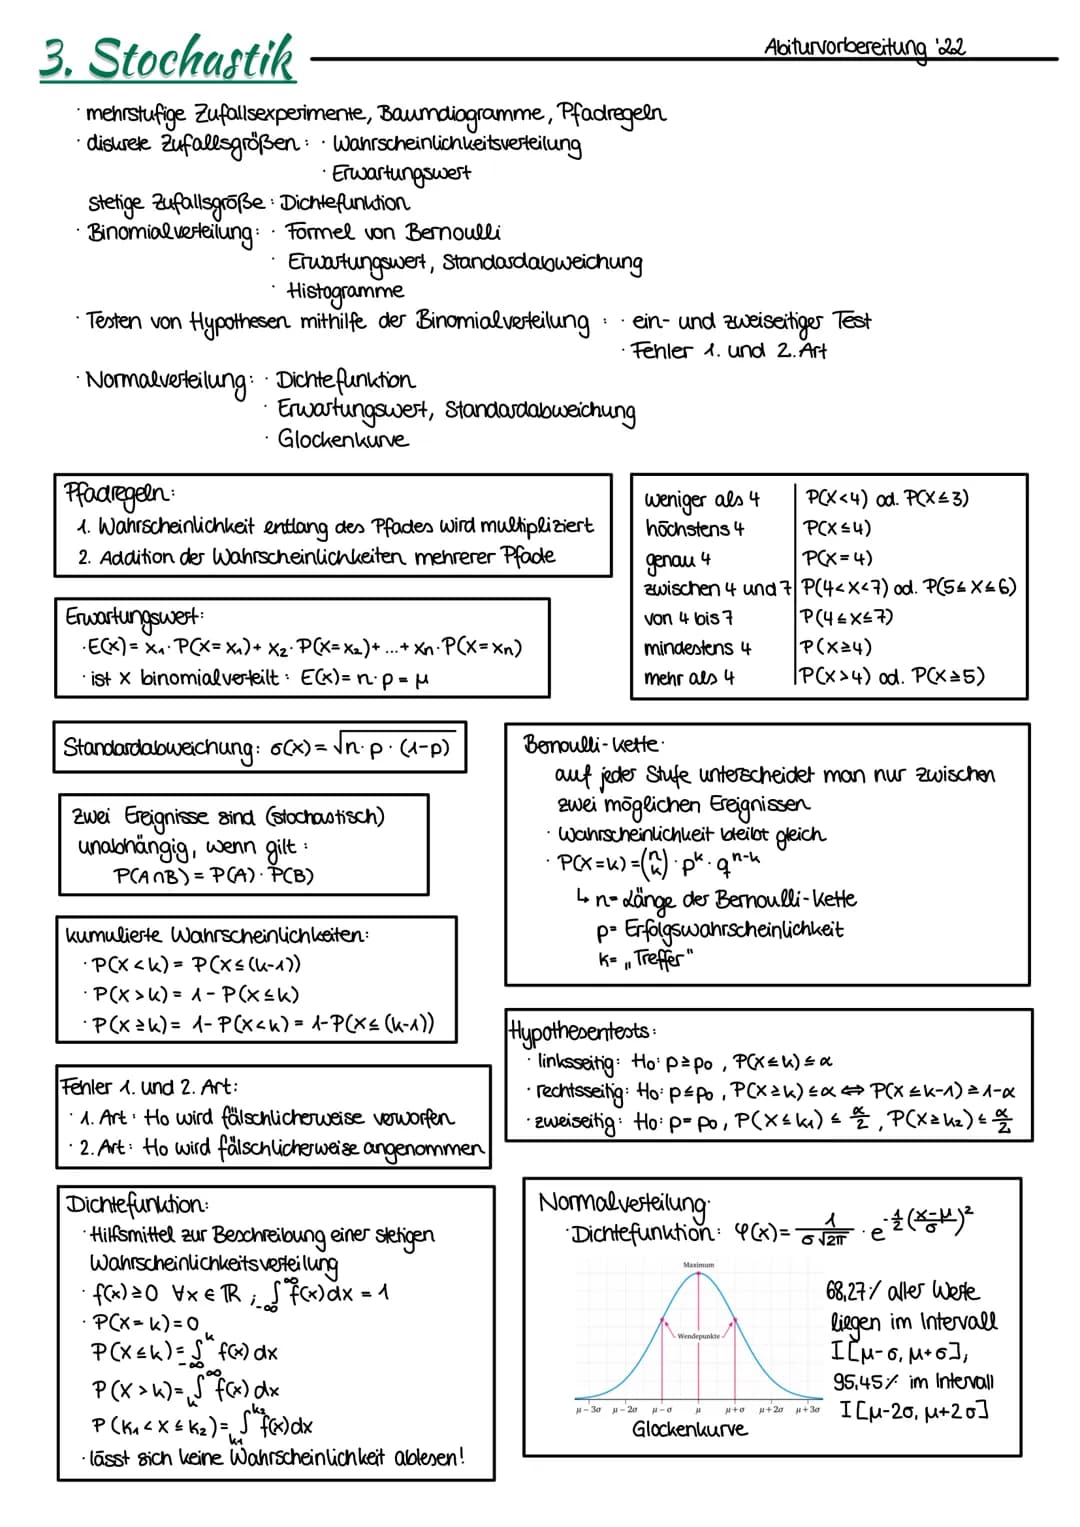 3. Stochastik
Abiturvorbereitung '22
· mehrstufige Zufallsexperimente, Baumdiagramme, Pfadregeln
· diskrete Zufallsgrößen: · Wahrscheinlichkeitsverteilung
· Erwartungswert
stetige Zufallsgröße: Dichtefunktion
· Binomialverteilung: · Formel von Bernoulli
· Erwartungswert, Standardabweichung
· Histogramme
· Testen von Hypothesen mithilfe der Binomialverteilung : · ein- und zweiseitiger Test
· Fehler 1. und 2. Art
· Normalverteilung: · Dichtefunktion
· Erwartungswert, Standardabweichung
· Glockenkurve
Pfadregeln:
1. Wahrscheinlichkeit entlang des Pfades wird multipliziert
2. Addition der Wahrscheinlichkeiten mehrerer Pfade
weniger als 4 P(X<4) od. P(X≤3)
höchstens 4 P(X≤4)
genau 4 P(X=4)
zwischen 4 und 7 P(4<X<7) od. P(5≤X≤6)
von 4 bis 7 P(4≤X≤7)
mindestens 4 P(X≥4)
mehr als 4 P(X>4) od. P(X≥5)
Erwartungswert:
· E(X) = x₁·P(X=x₁) + x₂·P(X=x₂) + ... + xn·P(X=xn)
· ist X binomialverteilt: E(X) = n·p = μ
Standardabweichung: σ(X) = √n·p·(1-p)
Zwei Ereignisse sind (stochastisch)
unabhängig, wenn gilt:
P(A∩B) = P(A)·P(B)
Bernoulli-Kette:
auf jeder Stufe unterscheidet man nur zwischen
zwei möglichen Ereignissen
· Wahrscheinlichkeit bleibt gleich
· P(X=k) = (n k) · p^k · q^(n-k)
↳ n= Länge der Bernoulli-Kette
p= Erfolgswahrscheinlichkeit
k= „Treffer"
kumulierte Wahrscheinlichkeiten:
· P(X<k) = P(X≤(k-1))
· P(X>k) = 1 - P(X≤k)
· P(X≥k) = 1 - P(X<k) = 1-P(X≤(k-1))
Hypothesentests:
· linksseitig: H₀: p≥p₀, P(X≤k) ≤ α
· rechtsseitig: H₀: p≤p₀, P(X≥k) ≤ α ⇔ P(X≤k-1) ≥ 1-α
· zweiseitig: H₀: p=p₀, P(X≤k₁) ≤ α/2, P(X≥k₂) ≤ α/2
Fehler 1. und 2. Art:
· 1. Art: H₀ wird fälschlicherweise verworfen
· 2. Art: H₀ wird fälschlicherweise angenommen
Dichtefunktion:
· Hilfsmittel zur Beschreibung einer stetigen
Wahrscheinlichkeitsverteilung
· f(x) ≥ 0 ∀x∈ℝ ; ₋∞∫^∞ f(x)dx = 1
· P(X=k) = 0
P(X≤k) = ₋∞∫^k f(x) dx
P(X>k) = k∫^∞ f(x) dx
P(k₁<X≤k₂) = k₁∫^k₂ f(x)dx
· lässt sich keine Wahrscheinlichkeit ablesen!
Normalverteilung:
· Dichtefunktion: φ(x) = 1/(σ√2π) · e^(-1/2((x-μ)/σ)²)
Maximum
Wendepunkte
μ−3σ μ−2σ μ−σ μ μ+σ μ+2σ μ+3σ
Glockenkurve
68,27% aller Werte
liegen im Intervall
I[μ-σ, μ+σ],
95,45% im Intervall
I[μ-2σ, μ+2σ]